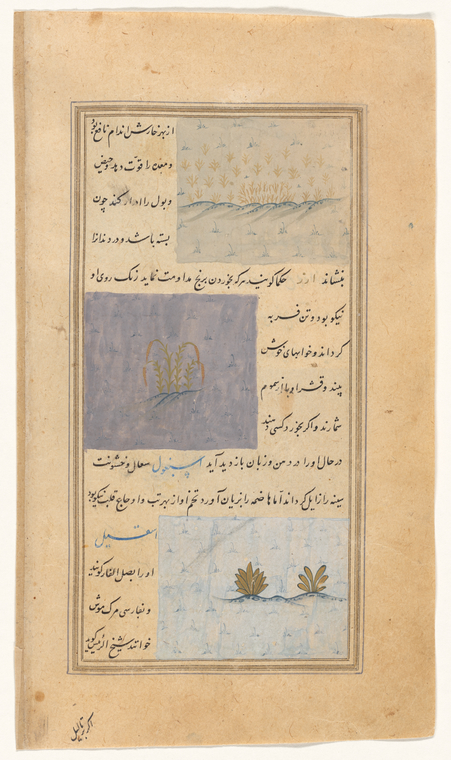 از بهر خارش اندام نافع بود
و معده را قوت دهد و حیض
و بول را ادرار کند چون
بسته باشد و درد دندان را
بنشاند ارز حکما گویند هر که بخوردن برنج مداومت نماید رنگ روی او
نیکو بود و تن فربه
کرداند و خوابهای خوش
بیند و قشر او را از سموم
شمارند و اگر بخورد کسی دهند
در حال او را درد دهن و زبان بازدید آید اسپغول سعال و خشونت
سینه را زایل کرداند آماها ضمه را بزیان آورد تخم او از بهر تب و اوجاع قلب نیکو بود
اسقیل
او را بصل الفار کویند
و بفارسی مرک موش
خوانند شیخ الرئیس کوید